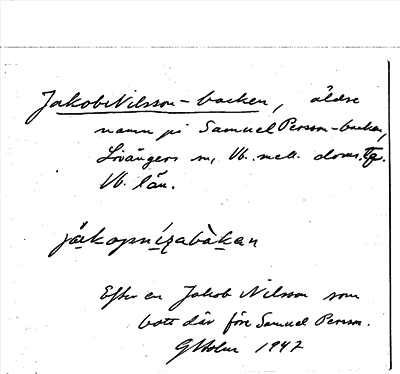 Jakob Nilsson-backen, äldre
namn på Samuel Person-backen,
Lövångers sn, Vb. mell. doms. tg.
Vb. län.
jäkopnízabàkan
Efter en Jakob Nilsson som
bott där före Samuel Person.
GHolm 1947